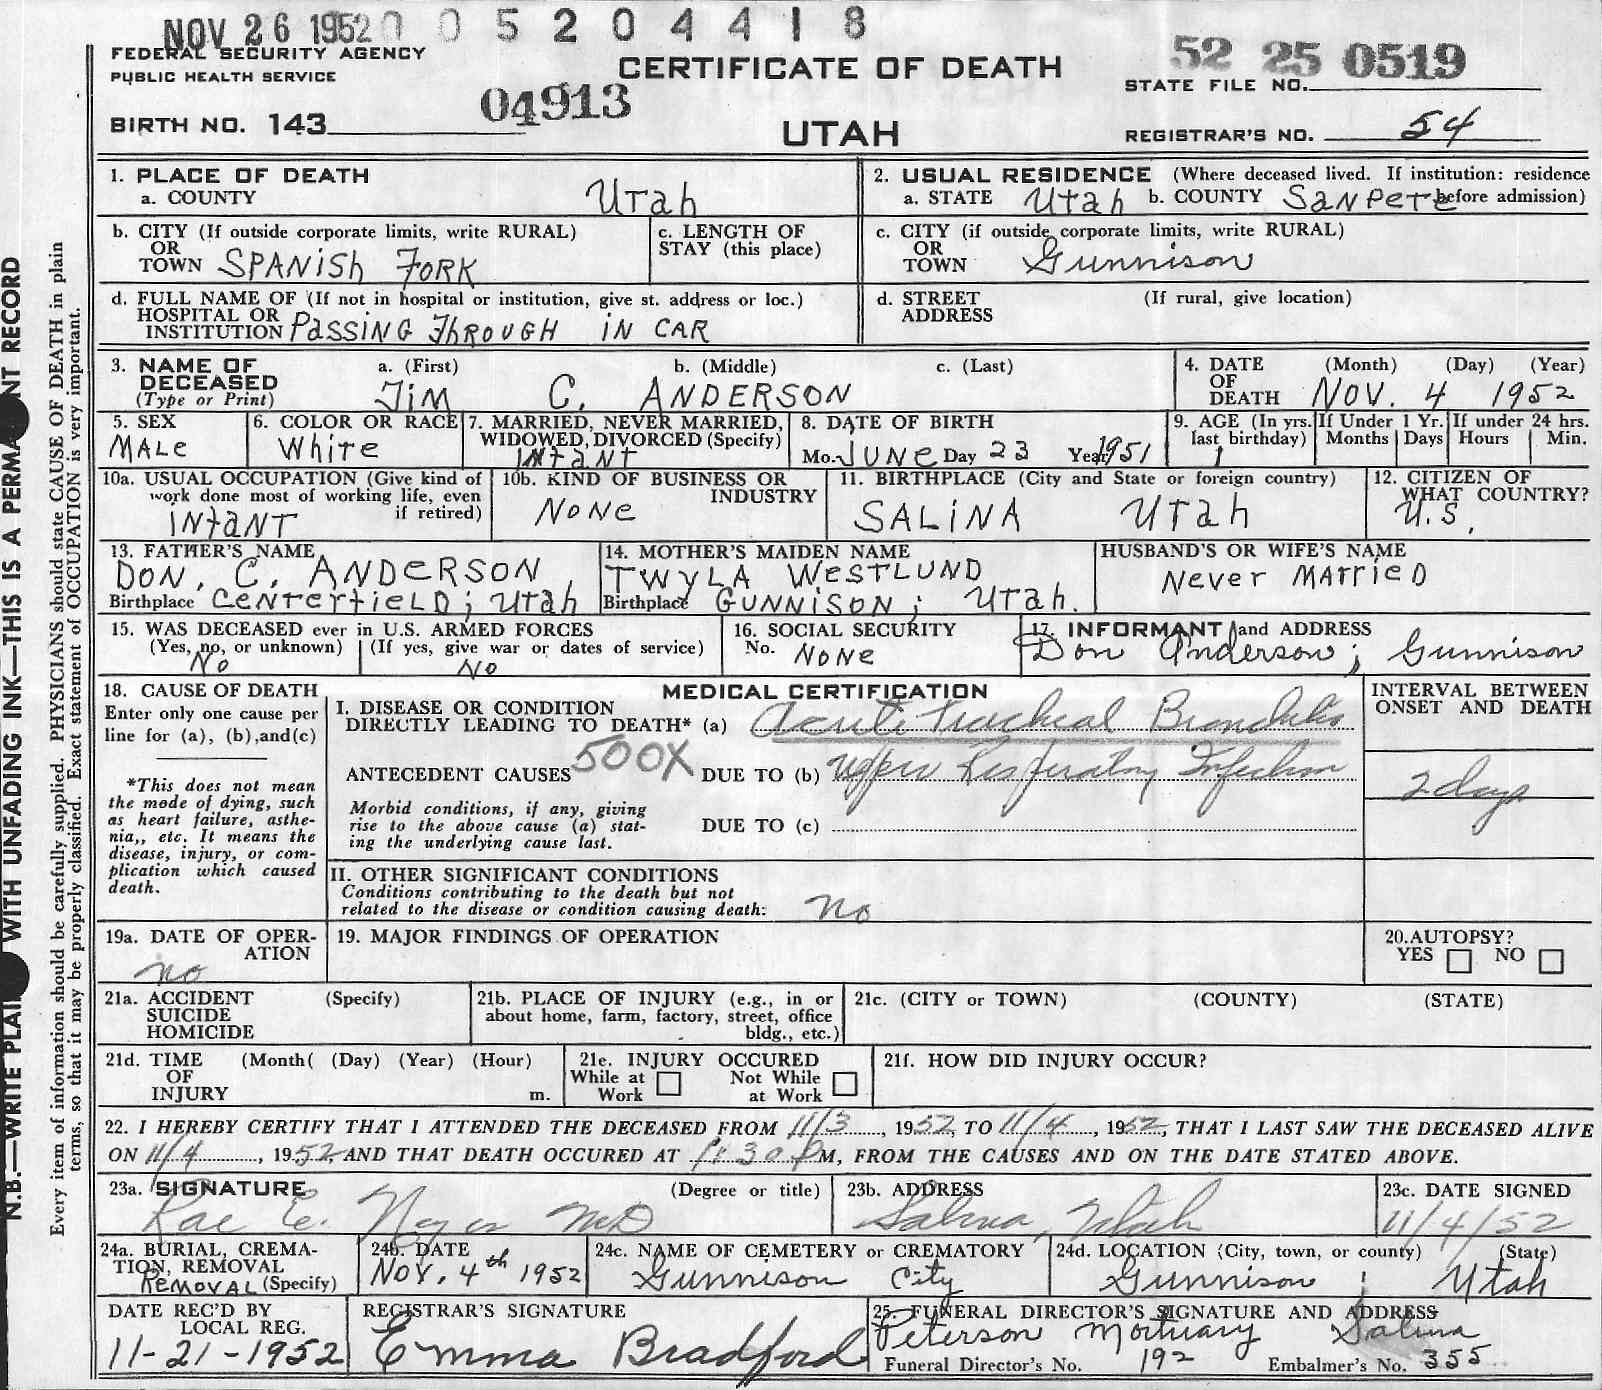 NOV 26 1952 0 0 5 2 0 4 4 1 8
FEDERAL SECURITY AGENCY
PUBLIC HEALTH SERVICE
CERTIFICATE OF DEATH
52 25 0519
STATE FILE NO.
BIRTH NO. 143
04913
UTAH
REGISTRAR'S NO. 54
1. PLACE OF DEATH
a. COUNTY Utah
2. USUAL RESIDENCE (Where deceased lived. If institution: residence before admission)
a. STATE Utah b. COUNTY SANPETE
b. CITY (If outside corporate limits, write RURAL)
OR
TOWN SPANISH FORK
c. LENGTH OF
STAY (this place)
c. CITY (if outside corporate limits, write RURAL)
OR
TOWN Gunnison
d. FULL NAME OF (If not in hospital or institution, give st. address or loc.)
HOSPITAL OR
INSTITUTION PASSING THROUGH IN CAR
d. STREET (If rural, give location)
ADDRESS
3. NAME OF a. (First) b. (Middle) c. (Last)
DECEASED
(Type or Print) JIM C. ANDERSON
4. DATE (Month) (Day) (Year)
OF
DEATH NOV. 4 1952
5. SEX
MALE
6. COLOR OR RACE
White
7. MARRIED, NEVER MARRIED,
WIDOWED, DIVORCED (Specify)
INFANT
8. DATE OF BIRTH
Mo. JUNE Day 23 Year 1951
9. AGE (In yrs. last birthday) 1
If Under 1 Yr. Months Days
If under 24 hrs. Hours Min.
10a. USUAL OCCUPATION (Give kind of
work done most of working life, even
if retired)
INFANT
10b. KIND OF BUSINESS OR
INDUSTRY
NONE
11. BIRTHPLACE (City and State or foreign country)
SALINA UTah
12. CITIZEN OF
WHAT COUNTRY?
U.S.
13. FATHER'S NAME
DON. C. ANDERSON
Birthplace CENTERFIELD; Utah
14. MOTHER'S MAIDEN NAME
TWYLA WESTLUND
Birthplace GUNNISON; UTah.
HUSBAND'S OR WIFE'S NAME
Never MARRIED
15. WAS DECEASED ever in U.S. ARMED FORCES
(Yes, no, or unknown) (If yes, give war or dates of service)
No No
16. SOCIAL SECURITY
No. NONE
17. INFORMANT and ADDRESS
Don Anderson; Gunnison
18. CAUSE OF DEATH
Enter only one cause per
line for (a), (b), and (c)
*This does not mean
the mode of dying, such
as heart failure, asthe-
nia,, etc. It means the
disease, injury, or com-
plication which caused
death.
MEDICAL CERTIFICATION
INTERVAL BETWEEN
ONSET AND DEATH
I. DISEASE OR CONDITION
DIRECTLY LEADING TO DEATH* (a) Acute Tracheal Bronchitis
ANTECEDENT CAUSES 500X DUE TO (b) Upper Respiratory Infection
2 days
Morbid conditions, if any, giving
rise to the above cause (a) stat-
ing the underlying cause last.
DUE TO (c)
II. OTHER SIGNIFICANT CONDITIONS
Conditions contributing to the death but not
related to the disease or condition causing death: no
19a. DATE OF OPER-
ATION
no
19. MAJOR FINDINGS OF OPERATION
20. AUTOPSY?
YES NO
21a. ACCIDENT (Specify)
SUICIDE
HOMICIDE
21b. PLACE OF INJURY (e.g., in or
about home, farm, factory, street, office
bldg., etc.)
21c. (CITY or TOWN) (COUNTY) (STATE)
21d. TIME (Month( (Day) (Year) (Hour)
OF
INJURY m.
21e. INJURY OCCURED
While at Work Not While at Work
21f. HOW DID INJURY OCCUR?
22. I HEREBY CERTIFY THAT I ATTENDED THE DECEASED FROM 11/3, 1952, TO 11/4, 1952, THAT I LAST SAW THE DECEASED ALIVE
ON 11/4, 1952, AND THAT DEATH OCCURED AT 1:30 PM, FROM THE CAUSES AND ON THE DATE STATED ABOVE.
23a. SIGNATURE (Degree or title)
Rae E. Noyes MD
23b. ADDRESS
Salina, Utah
23c. DATE SIGNED
11/4/52
24a. BURIAL, CREMA-
TION, REMOVAL
REMOVAL (Specify)
24b. DATE
NOV. 4th 1952
24c. NAME OF CEMETERY or CREMATORY
Gunnison City
24d. LOCATION (City, town, or county) (State)
Gunnison; Utah
DATE REC'D BY
LOCAL REG.
11-21-1952
REGISTRAR'S SIGNATURE
Emma Bradford
25. FUNERAL DIRECTOR'S SIGNATURE AND ADDRESS
Peterson Mortuary Salina
Funeral Director's No. 192 Embalmer's No. 355
Every item of information should be carefully supplied. PHYSICIANS should state CAUSE OF DEATH in plain
terms, so that it may be properly classified. Exact statement of OCCUPATION is very important.